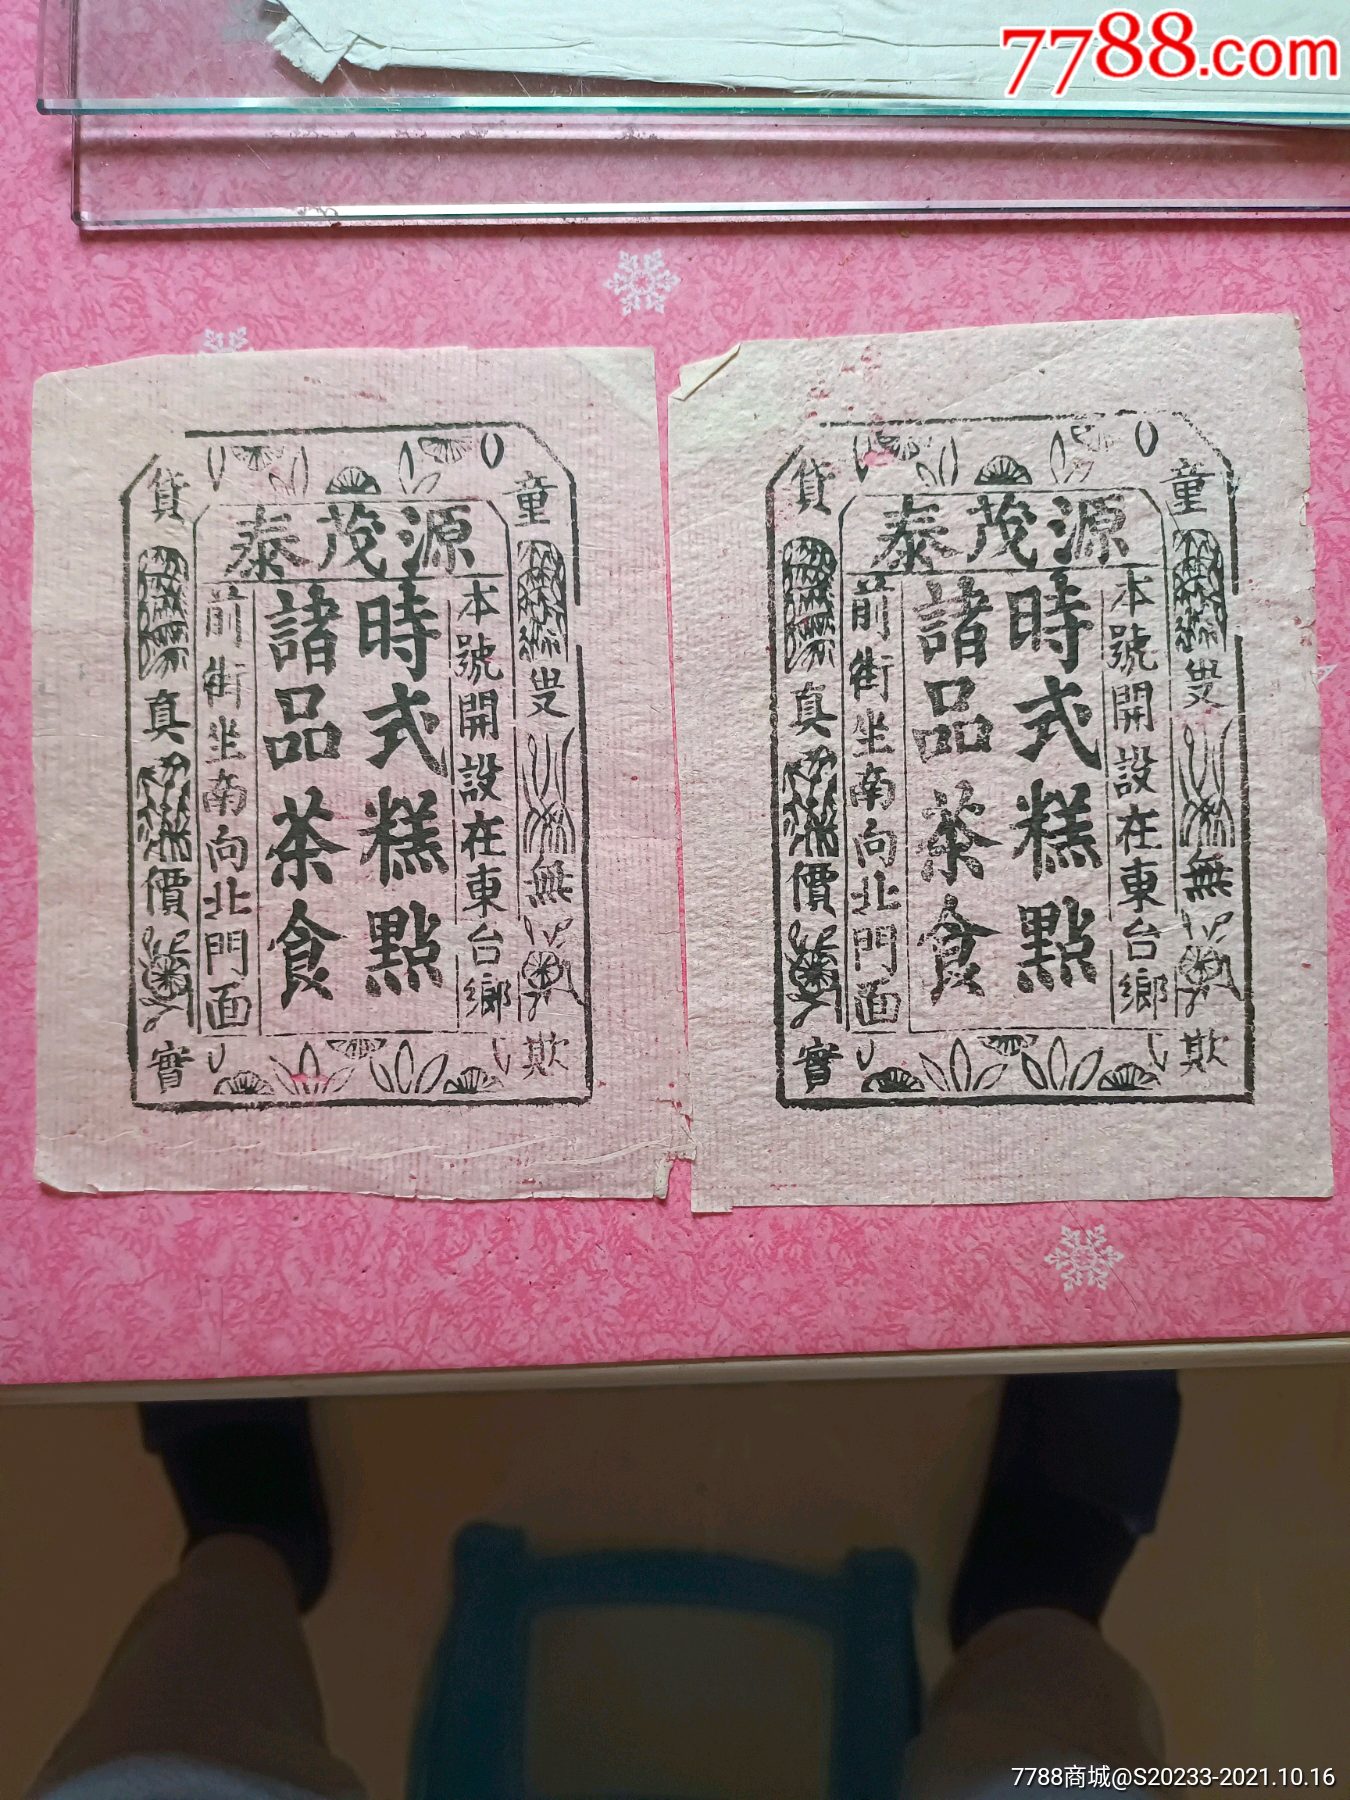 7788.com
源茂泰
童叟無欺
本號開設在東台鄉
時式糕點
諸品茶食
前街坐南向北門面
貨真價實
源茂泰
童叟無欺
本號開設在東台鄉
時式糕點
諸品茶食
前街坐南向北門面
貨真價實
7788商城@S20233-2021.10.16